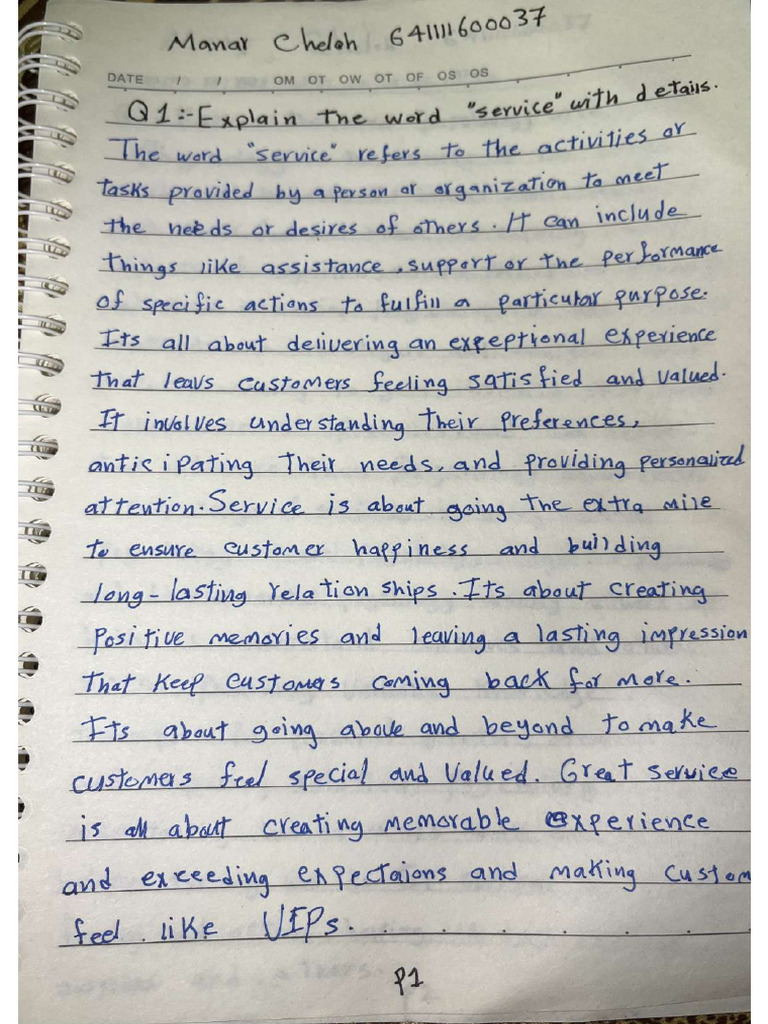 Manar Cheloh 64111600037
DATE / / OM OT OW OT OF OS OS
Q1:- Explain the word "service" with details.
The word "service" refers to the activities or
tasks provided by a person or organization to meet
the needs or desires of others. It can include
things like assistance, support or the performance
of specific actions to fulfill a particular purpose.
Its all about delivering an exceptional experience
that leavs customers feeling satisfied and valued.
It involves understanding their preferences,
anticipating their needs, and providing personalized
attention. Service is about going the extra mile
to ensure customer happiness and building
long-lasting relationships. Its about creating
positive memories and leaving a lasting impression
that keep customers coming back for more.
Its about going above and beyond to make
customers feel special and valued. Great service
is all about creating memorable experience
and exceeding expectaions and making custom
feel like VIPs.
P1